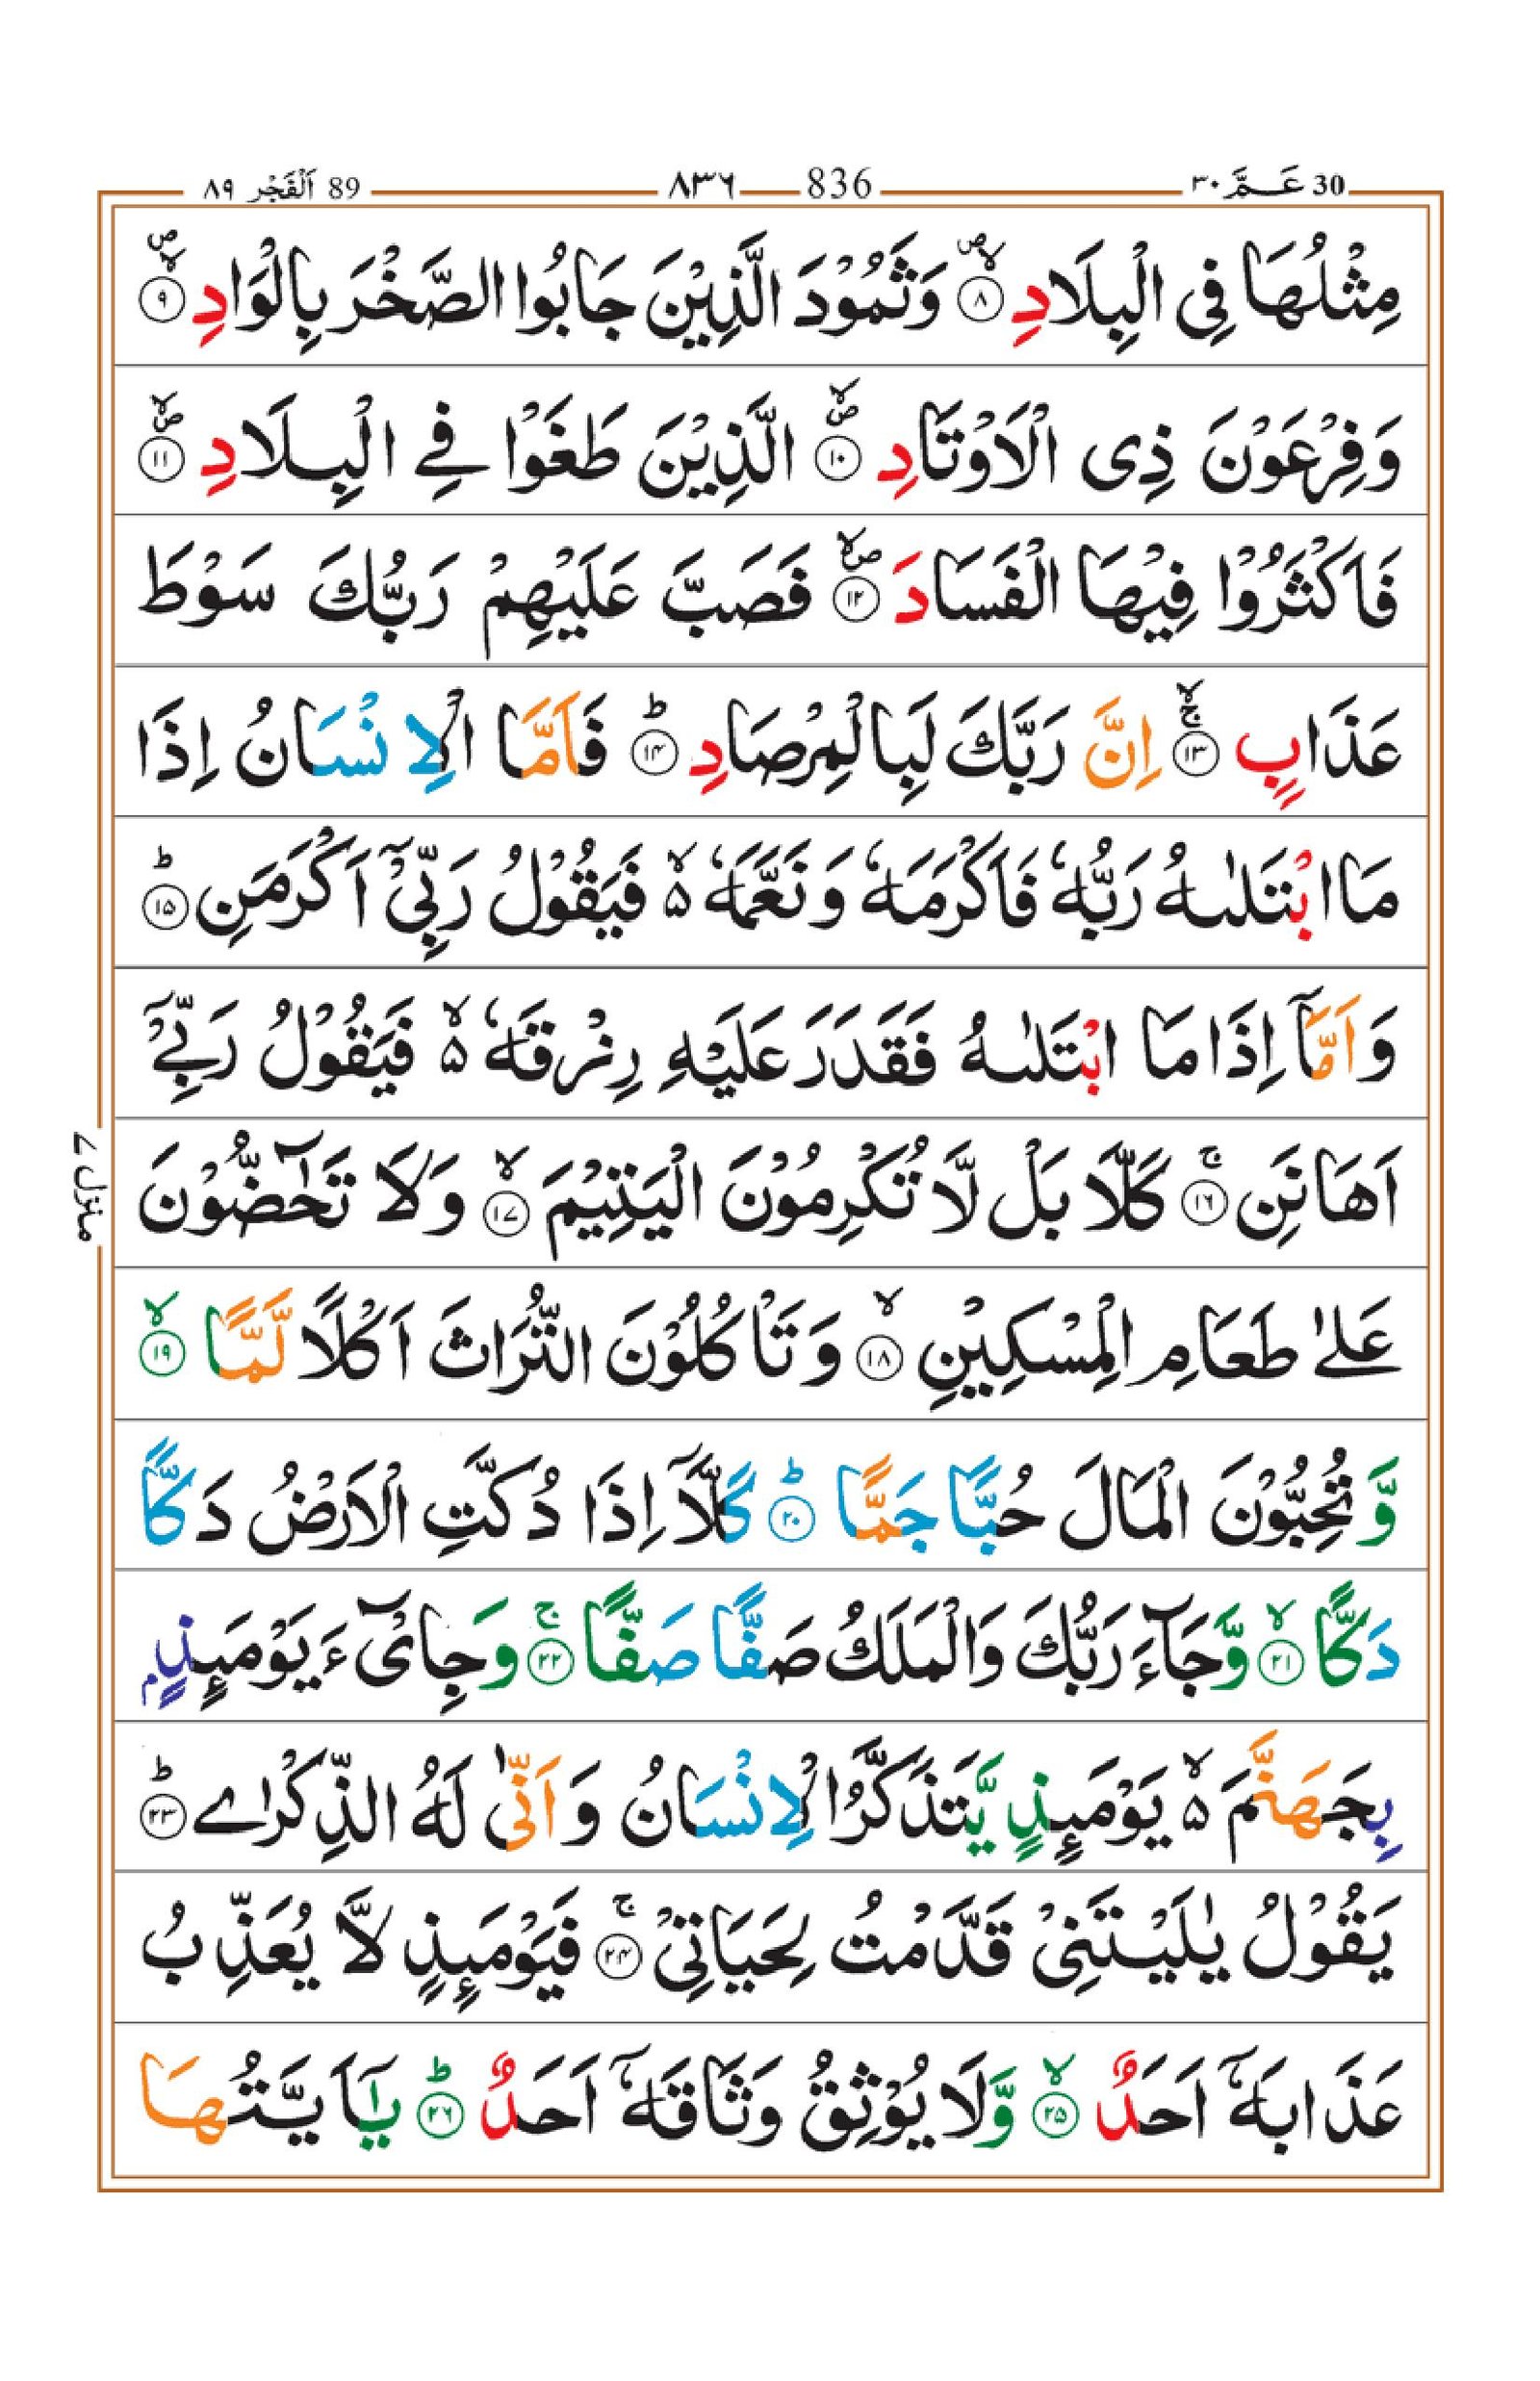 30 عَـمَّ ٣٠ 836 ٨٣٦ 89 اَلْفَجْر ٨٩
مِثْلُهَا فِى الْبِلَادِ ۪ۙ‏ ﴿۸﴾ وَثَمُوْدَ الَّذِيْنَ جَابُوا الصَّخْرَ بِالْوَادِ ۪ۙ‏ ﴿۹﴾
وَفِرْعَوْنَ ذِى الْاَوْتَادِ ۪ۙ‏ ﴿۱۰﴾ الَّذِيْنَ طَغَوْا فِے الْبِـلَادِ ۪ۙ‏ ﴿۱۱﴾
فَاَكْثَرُوْا فِيْهَا الْفَسَادَ ۪ۙ‏ ﴿۱۲﴾ فَصَبَّ عَلَيْهِمْ رَبُّكَ سَوْطَ
عَذَابٍ ۚۙ‏ ﴿۱۳﴾ اِنَّ رَبَّكَ لَبِالْمِرْصَادِ ؕ‏ ﴿۱۴﴾ فَاَمَّا الْاِنْسَانُ اِذَا
مَا ابْتَلٰىهُ رَبُّهٗ فَاَكْرَمَهٗ وَ نَعَّمَهٗ ۙ۵ فَيَقُوْلُ رَبِّىْۤ اَكْرَمَنِ ؕ‏ ﴿۱۵﴾
وَ اَمَّاۤ اِذَا مَا ابْتَلٰىهُ فَقَدَرَ عَلَيْهِ رِزْقَهٗ ۙ۵ فَيَقُوْلُ رَبِّےْۤ
اَهَانَنِ ۚ‏ ﴿۱۶﴾ كَلَّا بَلْ لَّا تُكْرِمُوْنَ الْيَتِيْمَ ۙ‏ ﴿۱۷﴾ وَلَا تَحٰٓضُّوْنَ
عَلٰے طَعَامِ الْمِسْكِيْنِ ۙ‏ ﴿۱۸﴾ وَ تَاْكُلُوْنَ التُّرَاثَ اَكْلًا لَّمًّا ۙ‏ ﴿۱۹﴾
وَّ تُحِبُّوْنَ الْمَالَ حُبًّا جَمًّا ؕ‏ ﴿۲۰﴾ كَلَّاۤ اِذَا دُكَّتِ الْاَرْضُ دَكًّا
دَكًّا ۙ‏ ﴿۲۱﴾ وَّ جَآءَ رَبُّكَ وَالْمَلَكُ صَفًّا صَفًّا ۚ‏ ﴿۲۲﴾ وَجِاىْٓءَ يَوْمَٮِٕذٍۢ
بِجَهَنَّمَ ۙ۵ يَوْمَٮِٕذٍ يَّتَذَكَّرُ الْاِنْسَانُ وَ اَنّٰى لَهُ الذِّكْرٰے ؕ‏ ﴿۲۳﴾
يَقُوْلُ يٰلَيْتَنِىْ قَدَّمْتُ لِحَيَاتِىْ ۚ‏ ﴿۲۴﴾ فَيَوْمَٮِٕذٍ لَّا يُعَذِّبُ
عَذَابَهٗۤ اَحَدٌ ۙ‏ ﴿۲۵﴾ وَّلَا يُوْثِقُ وَثَاقَهٗۤ اَحَدٌ ؕ‏ ﴿۲۶﴾ يٰۤاَيَّتُهَا
منزل ۷